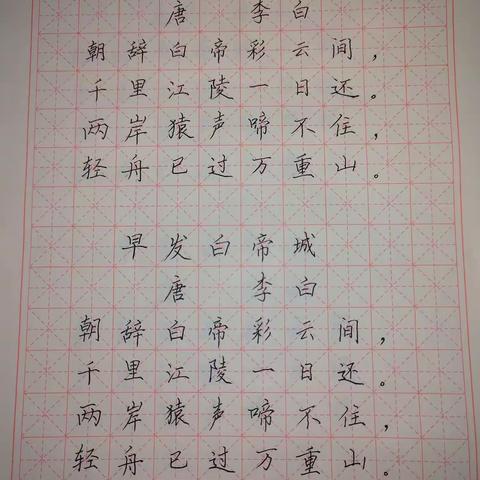 唐 李白
朝辞白帝彩云间，
千里江陵一日还。
两岸猿声啼不住，
轻舟已过万重山。
早发白帝城
唐 李白
朝辞白帝彩云间，
千里江陵一日还。
两岸猿声啼不住，
轻舟已过万重山。